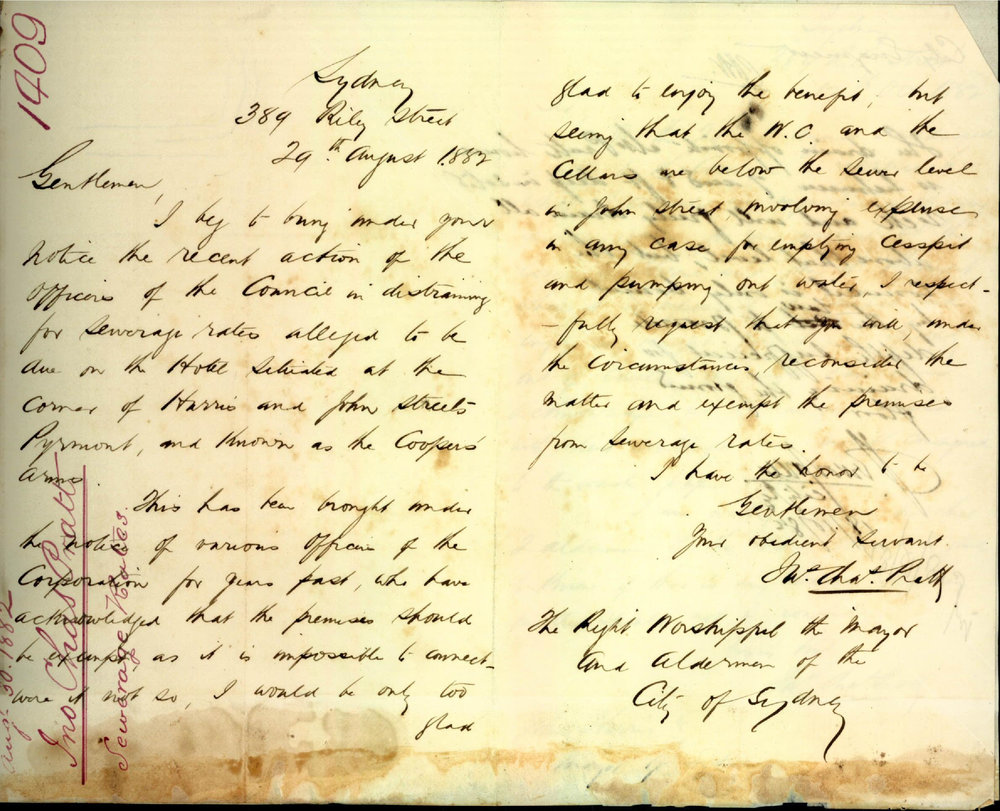 1409
Sydney
389 Riley Street
29th August 1882
Gentlemen,
I beg to bring under your
notice the recent action of the
Officers of the Council in distraining
for sewerage rates alleged to be
due on the Hotel situated at the
corner of Harris and John Streets
Pyrmont, and known as the Coopers'
Arms.
This has been brought under
the notice of various Officers of the
Corporation for years past, who have
acknowledged that the premises should
be exempt as it is impossible to connect-
were it not so, I would be only too
glad
glad to enjoy the benefit, but
seeing that the W.C. and the
Cellars are below the sewer level
in John Street involving expenses
in any case for emptying Cesspit
and pumping out water I respect-
-fully request that you will, under
the circumstances, reconsider the
matter and exempt the premises
from sewerage rates.
I have the honor to be
Gentlemen
Your obedient Servant.
Jno. Chas. Pratt
The Right Worshipful the Mayor
and Aldermen of the
City of Sydney
Augt. 30. 1882
Jno Chas Pratt
Sewerage Rates.